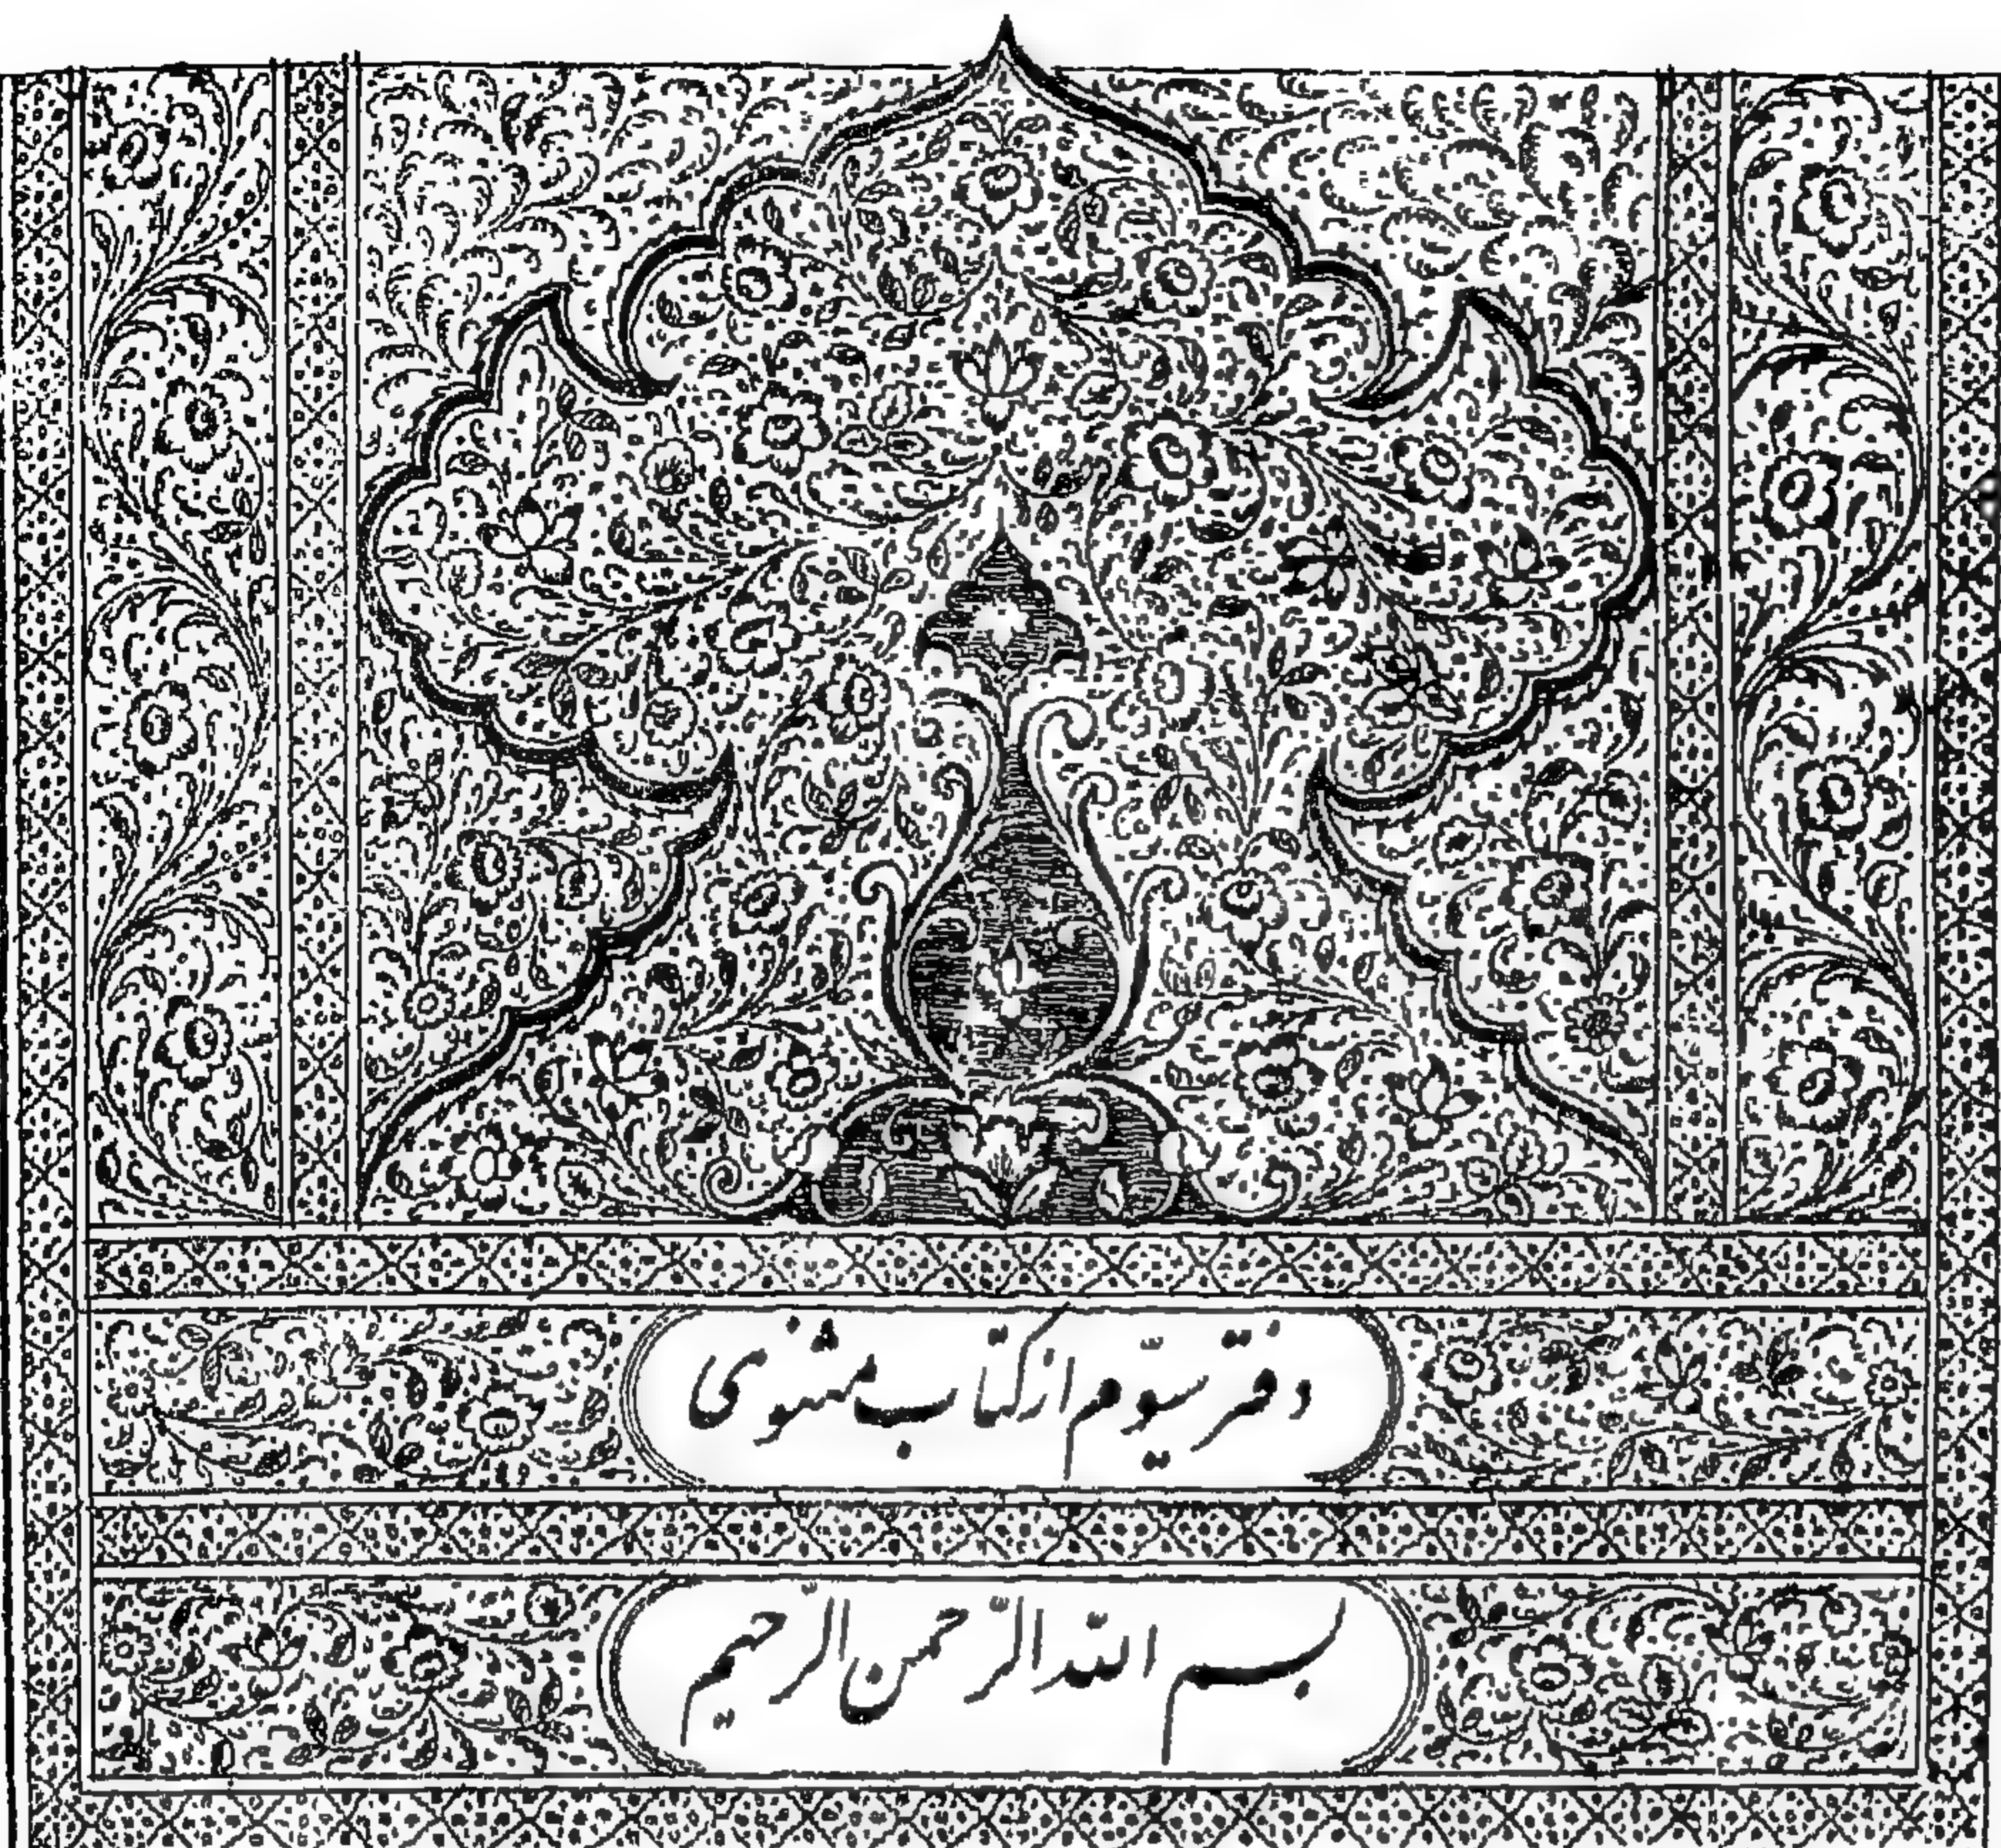 دفتر سوّم از کتاب مثنوی
بسم الله الرّحمن الرّحیم